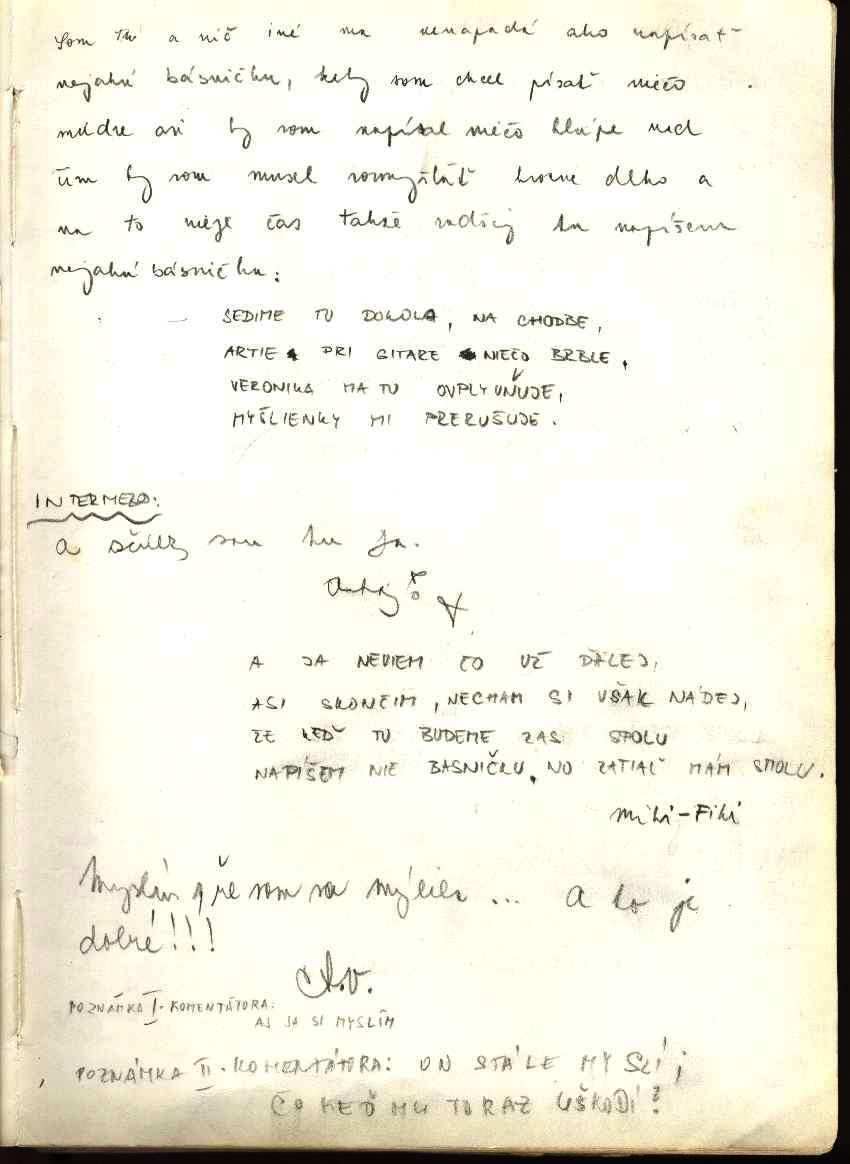 Som tu a nič iné ma nenapadá ako napísať
nejakú básničku, keby som chcel písať niečo
múdre asi by som napísal niečo hlúpe nad
tým by som musel rozmýšľať hrozne dlho a
na to nieje čas takže radšej tu napíšem
nejakú básničku:
SEDIME TU DOKOLA, NA CHODBE,
ARTIE PRI GITARE NIEČO BRBLE,
VERONIKA MA TU OVPLYVŇUJE,
MYŠLIENKY MI PRERUŠUJE.
INTERMEZO:
a som tu ja.
A JA NEVIEM ČO UŽ ĎALEJ,
ASI SKONČIM, NECHAM SI VŠAK NÁDEJ,
ŽE KEĎ TU BUDEME ZAS SPOLU
NAPÍŠEM NIE BASNIČKU, NO ZATIAĽ MÁM SMOLU.
Miki-Fiki
Myslím, že som sa mýlila ... A to je
dobré!!!
A.V.
POZNÁMKA I. KOMENTÁTORA:
AJ JA SI MYSLÍM
POZNÁMKA II. KOMENTÁTORA: ON STÁLE MYSLÍ;
ČO KEĎ MU TO RAZ UŠKODÍ?